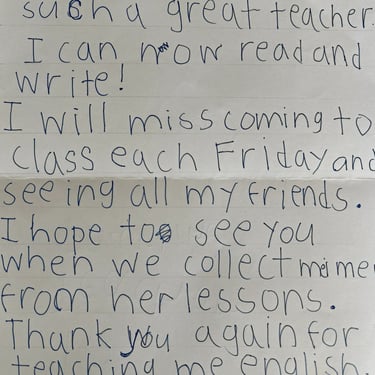 such a great teacher.
I can now read and
write!
I will miss coming to
class each Friday and
seeing all my friends.
I hope to see you
when we collect meime
from her lessons.
Thank you again for
teaching me english.